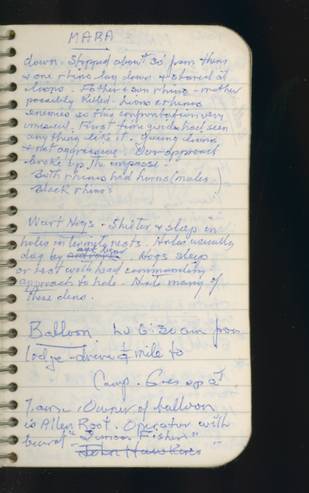 MARA
down. Stopped about 30' from them
& one rhino lay down & stared at
lions. Father & son rhino - mother
possibly killed. Lions & rhinos
enemies so this confrontation very
unusual. First time guides had seen
any thing like it. Young lions
& not aggressive. Our approach
broke up the impasse.
Both rhinos had horns (males)
Black rhinos
Wart Hogs - Shelter & sleep in
holes in termite nests. Holes usually
dug by ant bear
Hogs sleep
or rest with head commanding
approach to hole. Note many of
these dens.
Balloon Lv 6:30 am from
Lodge - drive 1/2 mile to
Camp. Goes up at
7 am. Owner of balloon
is Allen Root. Operator with
beard "Duncan Fisher"
John Hawkins